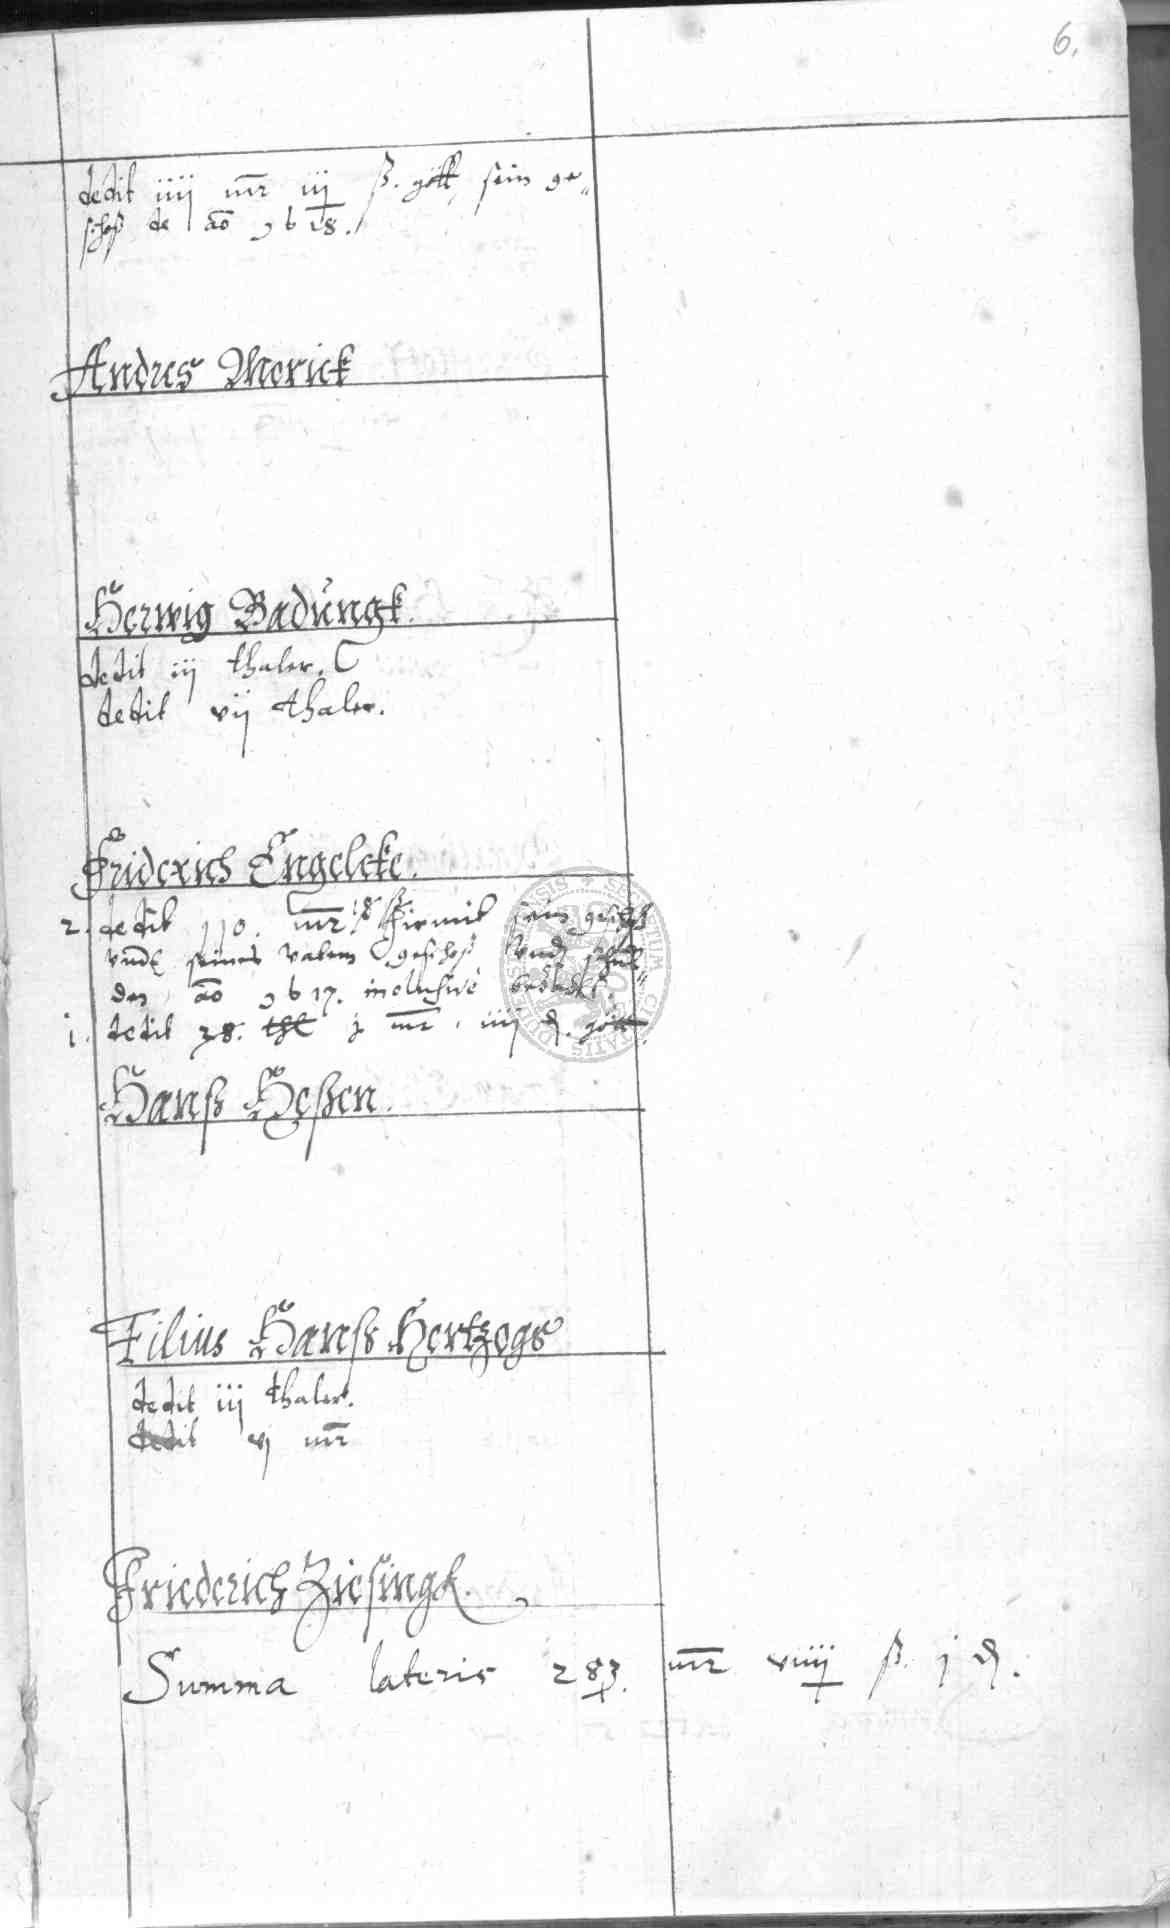 6.
dedit iiij mr iij ß. gött sein ge„
schoß de ao 1618.
Andres Merick
Herwig Badungk.
dedit iij thaler.
dedit vij thaler.
Friderich Engelcke.
2. dedit 110. mr 18 ß hiermit sein geschoß
vnd seines vatern geschoß vnd
den ao 1617. inclusive
1. dedit 38. thl mr. iiij d. gött
Hanß Heßen.
Filius Hanß Hertzogs
dedit iij thaler.
dedit vj mr
Friederich Ziesingk.
Summa lateris 283. mr viiij ß. j d.